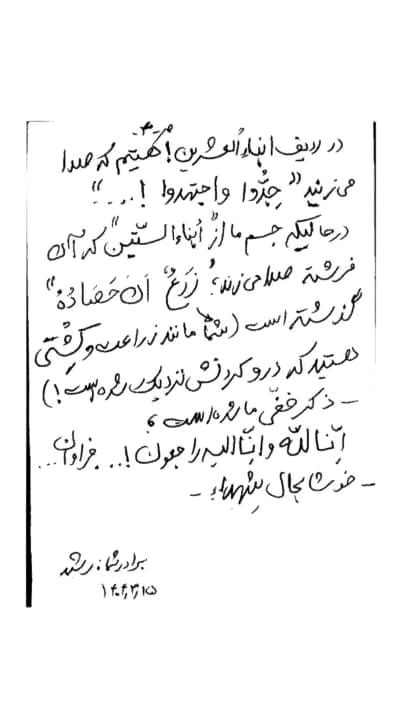 -۴-
در ردیف ابناءُ العشرین! هستیم که صدا
می‌زنید "جِدُّوا واجتهدوا !...."
درحالیکه جسم ما از "أبناء السّتّین" که آن
فرشته صدا می‌زند؛ "زَرعٌ آنَ حَصَادُهُ"
گذشته است (شما مانند زراعت و کِشتی
هستید که درو کردنش نزدیک شده است!)
- ذکر خفیّ ما شده است؛
اِنّا لِلّه و اِنّا الیه راجعون!... فراوان...
- خوشا بحال شهداء -
برادر شما: رشید
۱۴۰۴,۳,۱۵